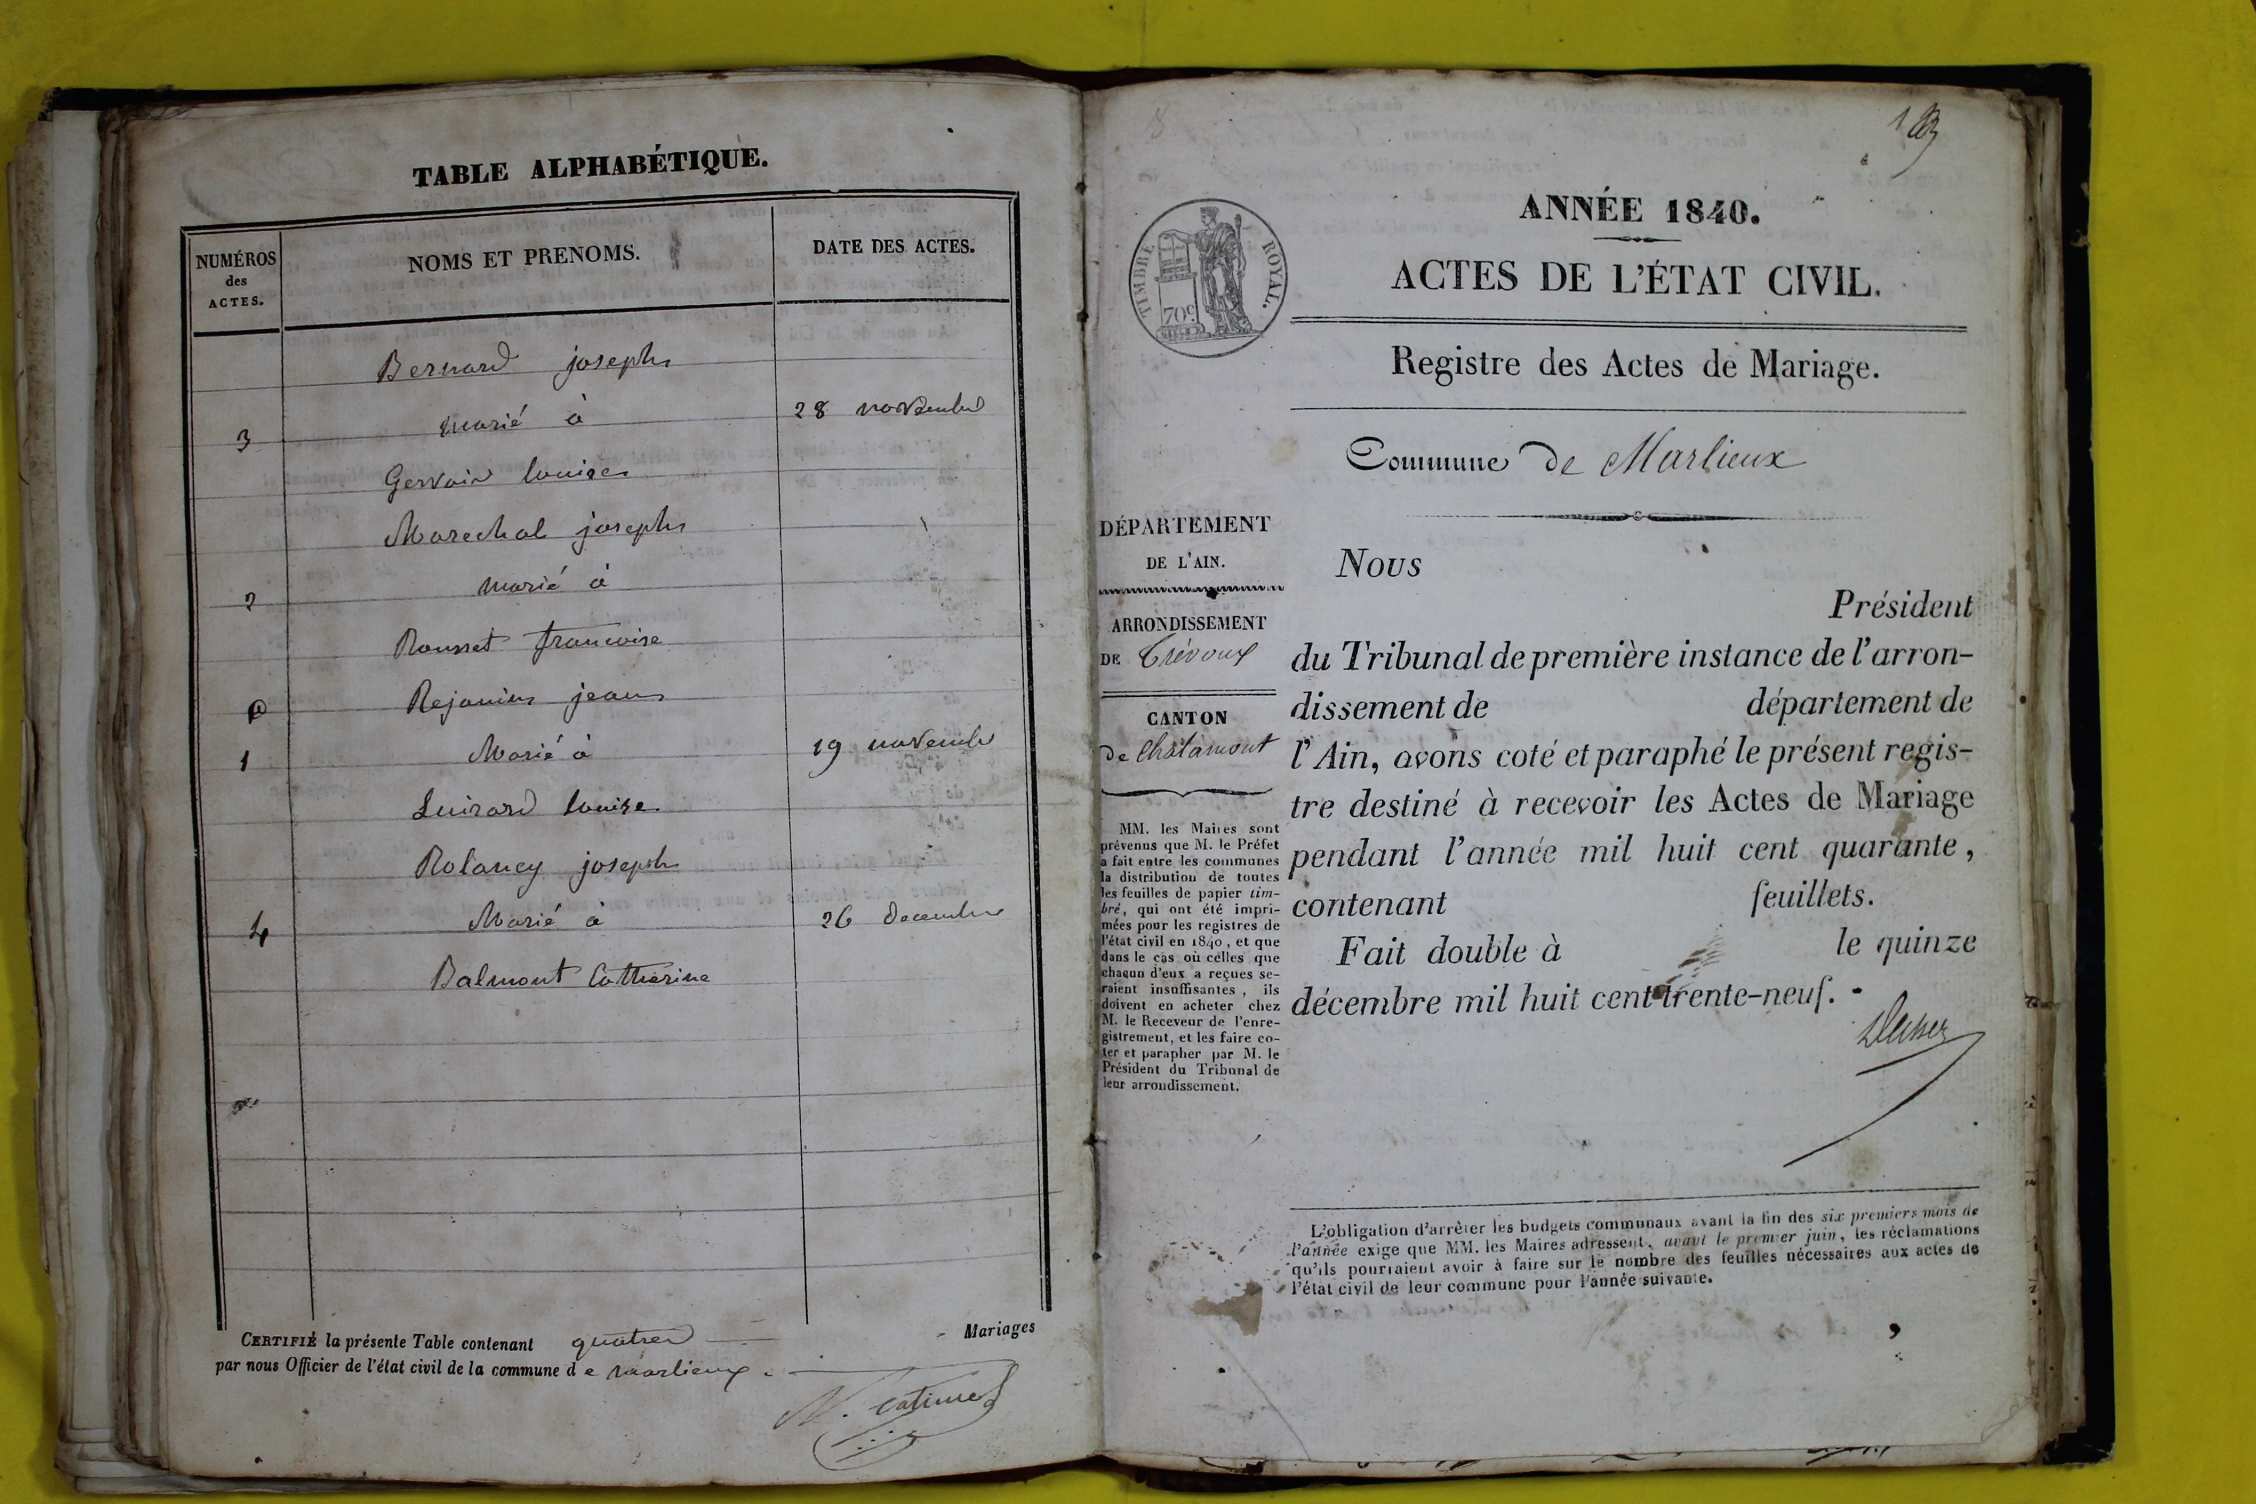 TABLE ALPHABÉTIQUE.
NUMÉROS
des
ACTES.
NOMS ET PRENOMS.
DATE DES ACTES.
Bernard joseph
3 marié à 28 novembre
Gervais louise
Marechal joseph
2 marié à
Rousset francoise
Rejanin jean
1 Marié à 19 novembre
Luirard louise
Rolancy joseph
4 Marié à 26 decembre
Balmont Catherine
CERTIFIÉ la présente Table contenant quatre Mariages
par nous Officier de l'état civil de la commune de marlieux.
ANNÉE 1840.
ACTES DE L'ÉTAT CIVIL.
TIMBRE ROYAL.
70c
Registre des Actes de Mariage.
Commune de Marlieux
DÉPARTEMENT
DE L'AIN.
ARRONDISSEMENT
DE Trévoux
CANTON
de Chalamont
MM. les Maires sont
prévenus que M. le Préfet
a fait entre les communes
la distribution de toutes
les feuilles de papier tim-
bré, qui ont été impri-
mées pour les registres de
l'état civil en 1840, et que
dans le cas où celles que
chacun d'eux a reçues se-
raient insuffisantes, ils
doivent en acheter chez
M. le Receveur de l'enre-
gistrement, et les faire co-
ter et parapher par M. le
Président du Tribunal de
leur arrondissement.
Nous
Président
du Tribunal de première instance de l'arron-
dissement de département de
l'Ain, avons coté et paraphé le présent regis-
tre destiné à recevoir les Actes de Mariage
pendant l'année mil huit cent quarante,
contenant feuillets.
Fait double à le quinze
décembre mil huit cent trente-neuf.
L'obligation d'arrêter les budgets communaux avant la fin des six premiers mois de
l'année exige que MM. les Maires adressent, avant le premier juin, les réclamations
qu'ils pourraient avoir à faire sur le nombre des feuilles nécessaires aux actes de
l'état civil de leur commune pour l'année suivante.